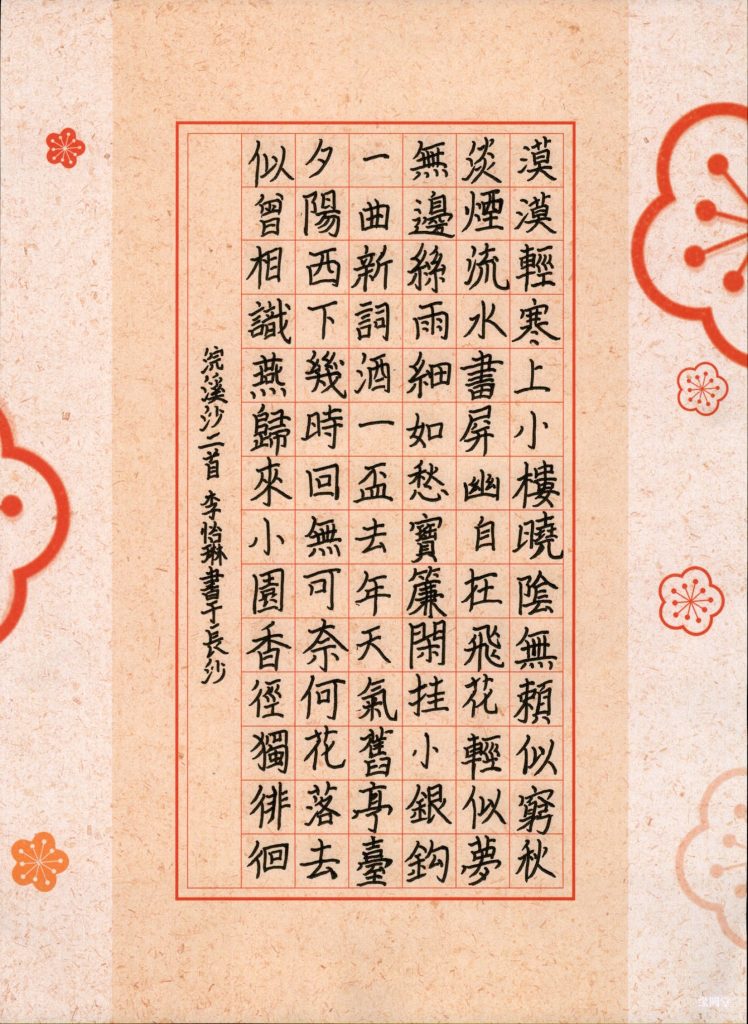 漠漠輕寒上小樓曉陰無賴似窮秋
淡煙流水畫屏幽自在飛花輕似夢
無邊絲雨細如愁寶簾閑挂小銀鈎
一曲新詞酒一盃去年天氣舊亭臺
夕陽西下幾時回無可奈何花落去
似曾相識燕歸來小園香徑獨徘徊
浣溪沙二首 李怡琳書于長沙